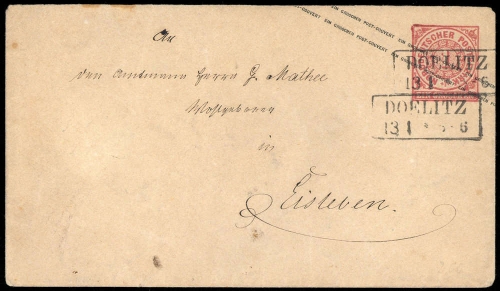 EIN GROSCHEN POST-COUVERT EIN GROSCHEN POST-COUVERT EIN GROSCHEN POST-COUVERT
An
den Amtmann Herrn G. Mathee
Wohlgeboren
in
Eisleben.
DOELITZ
13 1 * 5-6
DOELITZ
13 1 * 5-6